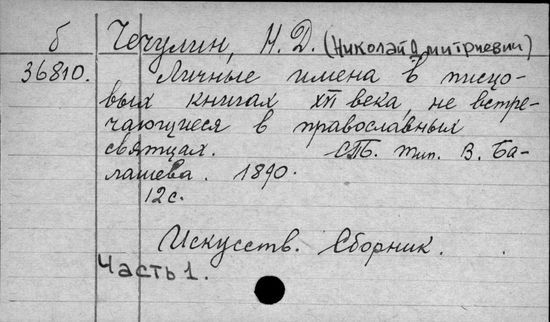 б Чечулин, Н. Д. (Николай Дмитриевич)
36810. Личные имена в писцо-
вых книгах XVI века, не встре-
чающиеся в православных
святцах. СПБ. тип. В. Ба-
лашева. 1890.
12 с.
Искусств. Сборник.
Часть 1.